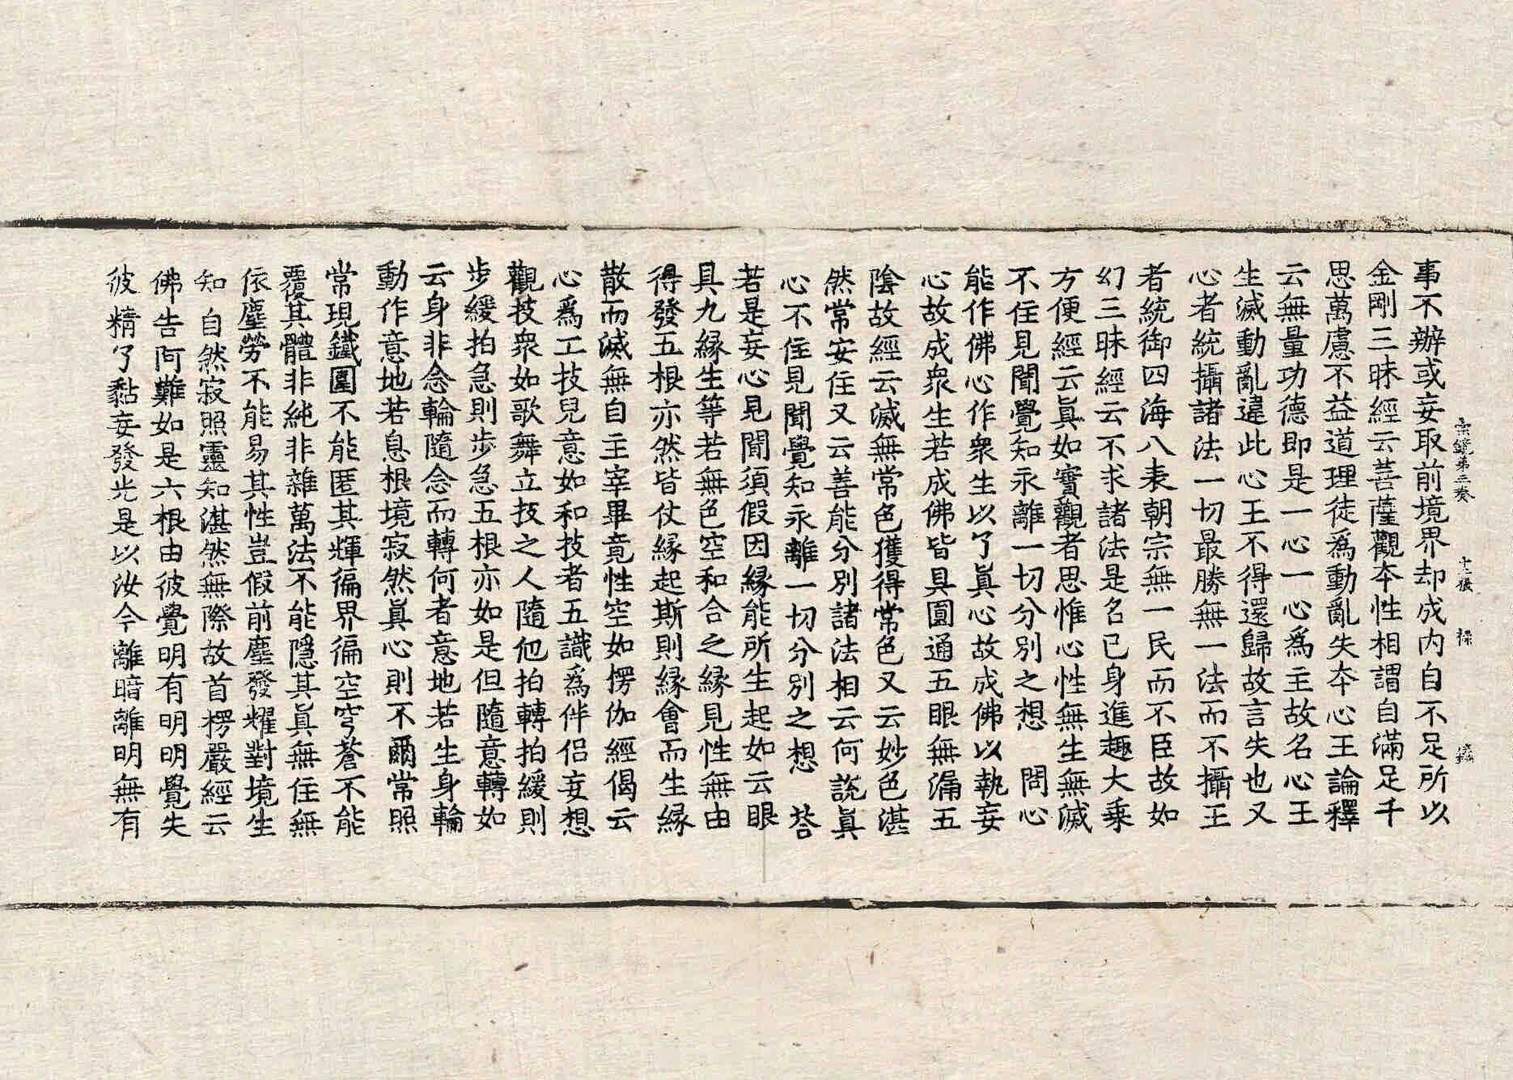 宗鏡第三卷 十張 㯳
事不辦或妄取前境界却成内自不足所以
金剛三昧經云菩薩觀夲性相謂自滿足千
思萬慮不益道理徒為動亂失夲心王論釋
云無量功德即是一心一心為主故名心王
生滅動亂違此心王不得還歸故言失也又
心者統攝諸法一切最勝無一法而不攝王
者統御四海八表朝宗無一民而不臣故如
幻三昧經云不求諸法是名已身進趣大乗
方便經云眞如實觀者思惟心性無生無滅
不住見聞覺知永離一切分別之想 問心
能作佛心作衆生以了眞心故成佛以執妄
心故成衆生若成佛皆具圓通五眼無漏五
陰故經云滅無常色獲得常色又云妙色湛
然常安住又云善能分別諸法相云何説眞
心不住見聞覺知永離一切分別之想 荅
若是妄心見聞須假因緣能所生起如云眼
具九緣生等若無色空和合之緣見性無由
得發五根亦然皆仗緣起斯則緣會而生緣
散而滅無自主宰畢竟性空如楞伽經偈云
心爲工技兒意如和技者五識爲伴侶妄想
觀技衆如歌舞立技之人隨他拍轉拍緩則
步緩拍急則步急五根亦如是但隨意轉如
云身非念輪隨念而轉何者意地若生身輪
動作意地若息根境寂然眞心則不爾常照
常現鐵圍不能匿其輝徧界徧空穹蒼不能
覆其體非純非雜萬法不能隱其眞無住無
依塵勞不能易其性豈假前塵發耀對境生
知 自然寂照靈知湛然無際故首楞嚴經云
佛告阿難如是六根由彼覺明有明明覺失
彼精了黏妄發光是以汝今離暗離明無有